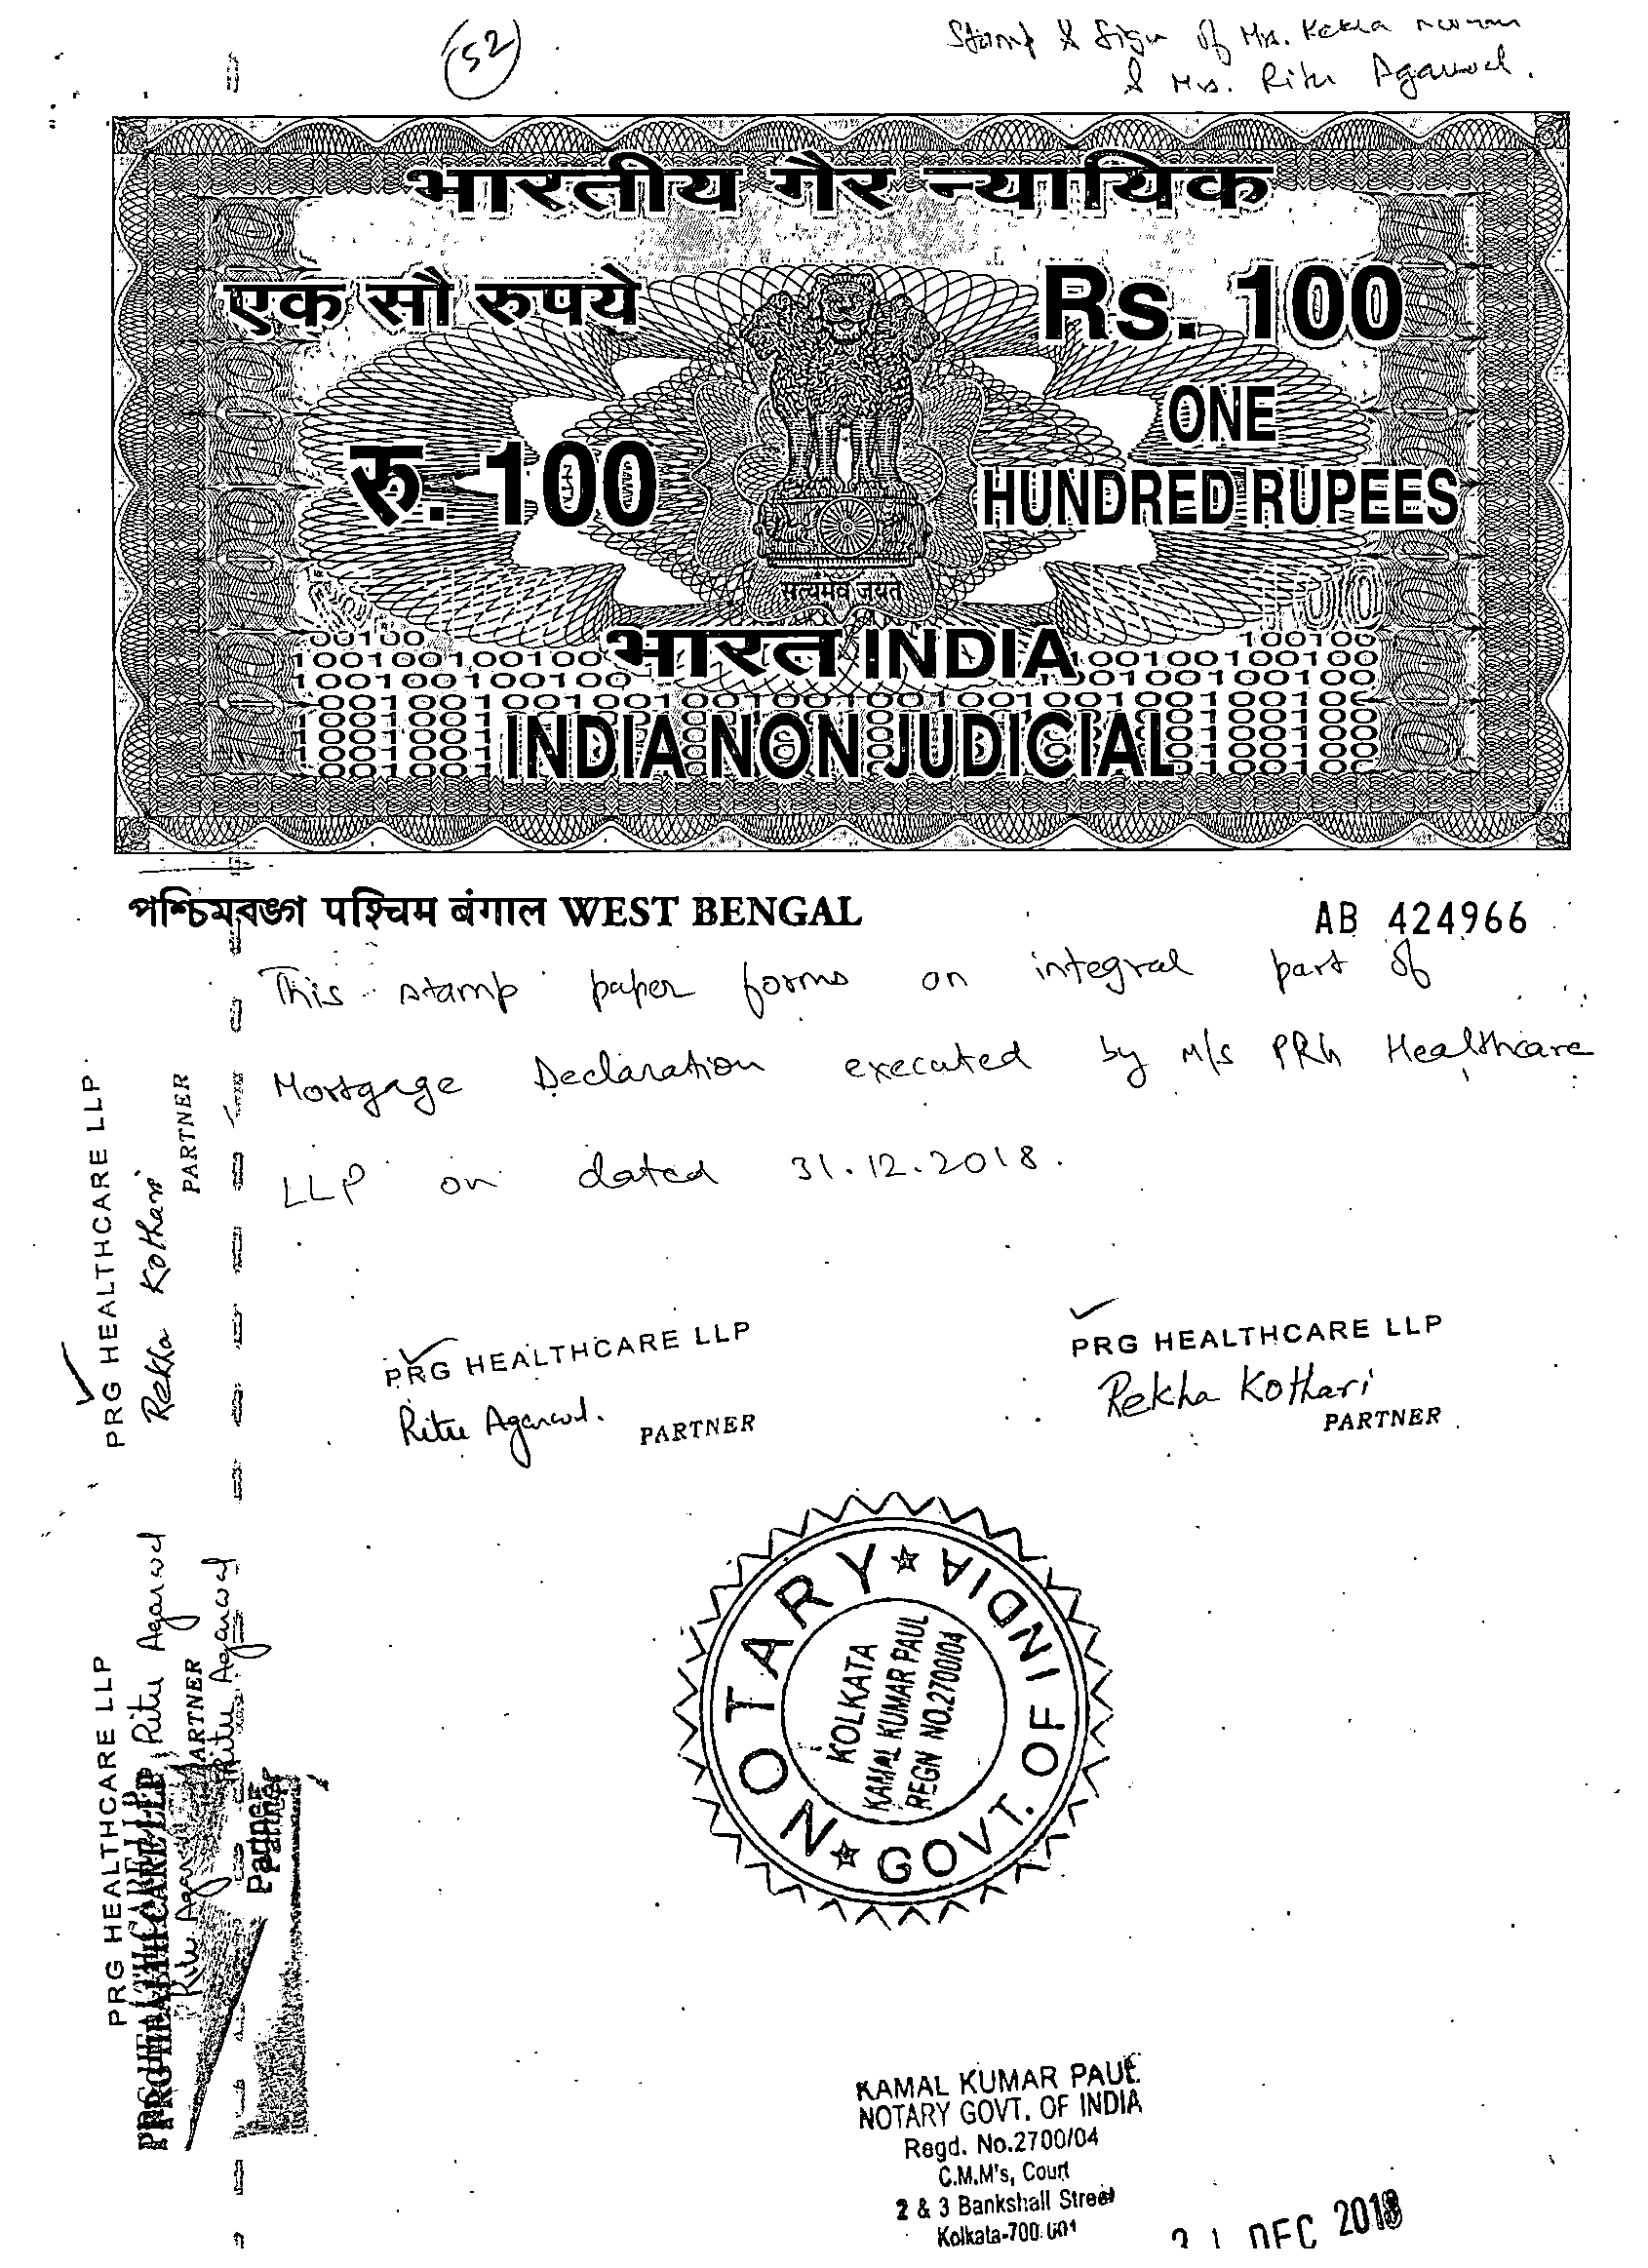 (52)
Stamp & Sign of Mrs. Rekha
& Mrs. Ritu Agarwal.
भारतीय गैर न्यायिक
एक सौ रुपये
Rs. 100
रु. 100
ONE
HUNDRED RUPEES
सत्यमेव जयते
भारत INDIA
INDIA NON JUDICIAL
পশ্চিমবঙ্গ पश्चिम बंगाल WEST BENGAL
AB 424966
This stamp paper forms an integral part of
Mortgage Declaration executed by M/s PRG Healthcare
LLP on dated 31.12.2018.
PRG HEALTHCARE LLP
Rekha Kothari
PARTNER
PRG HEALTHCARE LLP
Ritu Agarwal.
PARTNER
PRG HEALTHCARE LLP
Rekha Kothari
PARTNER
PRG HEALTHCARE LLP
Ritu Agarwal
PARTNER
Ritu Agarwal
Partner
NOTARY ★ GOVT. OF INDIA ★
KOLKATA
KAMAL KUMAR PAUL
REGN NO.2700/04
KAMAL KUMAR PAUL
NOTARY GOVT. OF INDIA
Regd. No.2700/04
C.M.M's, Court
2 & 3 Bankshall Street
Kolkata-700 001
31 DEC 2018